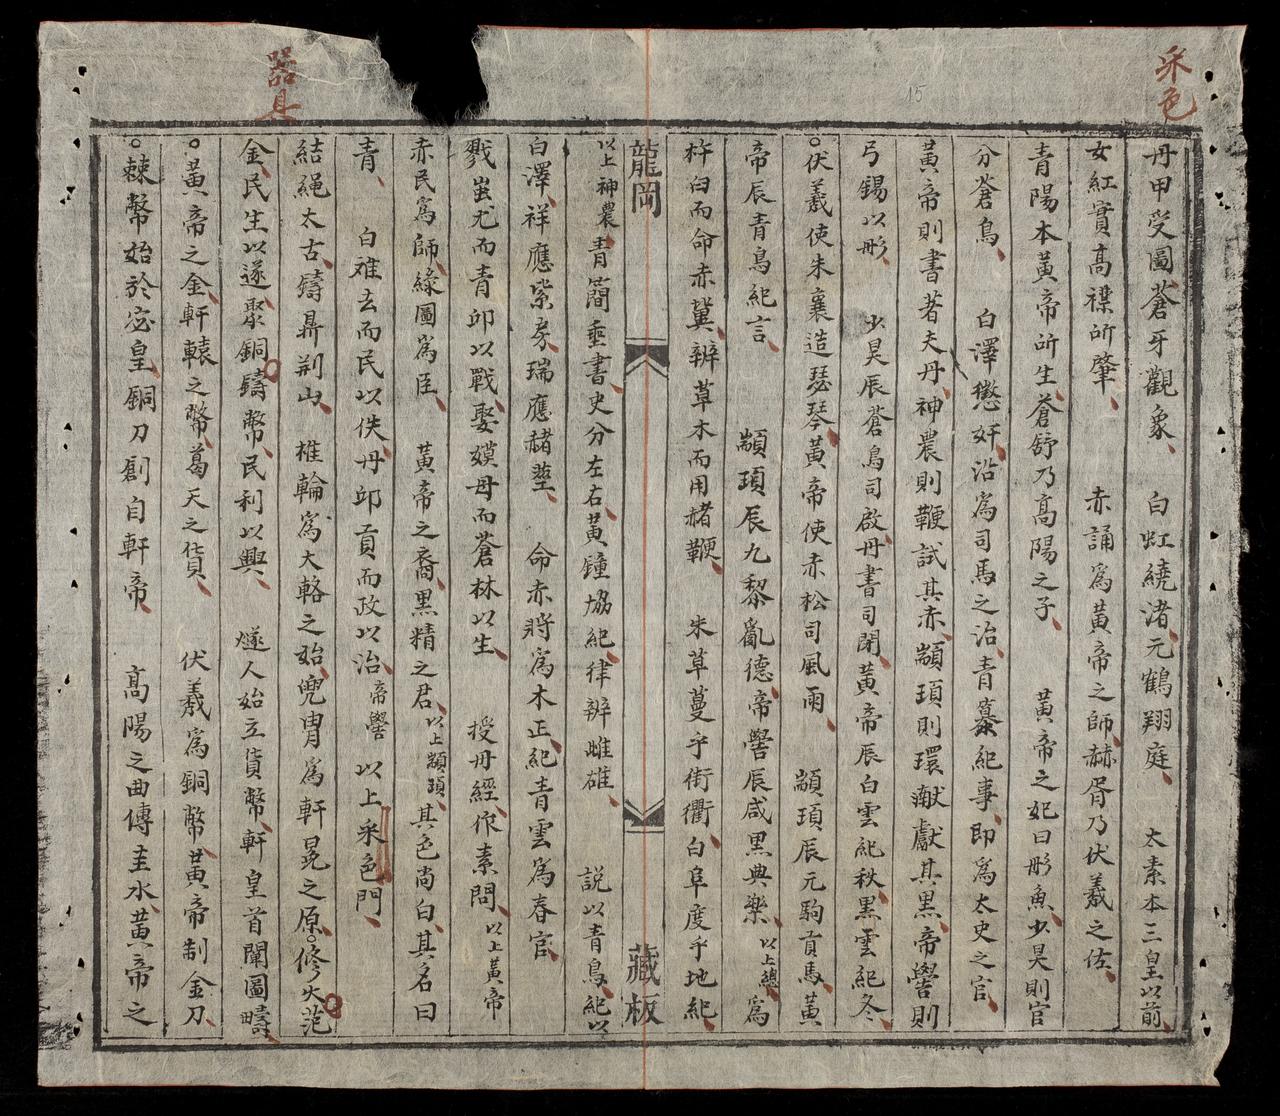 采色
丹甲受圖、蒼牙觀象、 白虹繞渚、元鶴翔庭、 太素本三皇以前、
女紅實高禖所肇、 赤誦為黃帝之師、赫胥乃伏羲之佐、
青陽本黃帝所生、蒼舒乃高陽之子、 黃帝之妃曰彤魚、少昊則官
分蒼鳥、 白澤懲奸、沿為司馬之治、青纂紀事、即為太史之官、
黃帝則書著夫丹、神農則鞭試其赤、顓頊則環獻其黑、帝嚳則
弓錫以彤、 少昊辰蒼鳥司啟、丹書司閉、黃帝辰白雲紀秋、黑雲紀冬、
○伏羲使朱襄造瑟琴、黃帝使赤松司風雨、 顓頊辰元駒貢馬、黃
帝辰青鳥紀言、 顓頊辰九黎亂德、帝嚳辰咸黑典樂、以上總、為
杵臼而命赤冀、辨草木而用赭鞭、 朱草蔓乎街衢、白阜度乎地紀、
龍岡 藏板
以上神農、青簡垂書、史分左右、黃鐘協紀、律辨雌雄、 說以青鳥、紀以
白澤、祥應紫房、瑞應赭堊、 命赤將為木正、紀青雲為春官、
戮蚩尤而青邱以戰、娶嫫母而蒼林以生、 授丹經、作素問、以上黃帝
赤民為師、綠圖為臣、 黃帝之裔、黑精之君、以上顓頊、其色尚白、其名曰
青、 白难去而民以佚、丹邱貢而政以治、帝嚳 以上采色門、
器具
結繩太古、鑄鼎荆山、 椎輪為大輅之始、兜胄為軒冕之原。修火范
金、民生以遂、聚銅鑄幣、民利以興、 燧人始立貨幣、軒皇首闡圖疇、
○黃帝之金、軒轅之幣、葛天之貨、 伏羲為銅幣、黃帝制金刀、
○棘幣始於宓皇、銅刀創自軒帝、 高陽之曲傳圭水、黃帝之